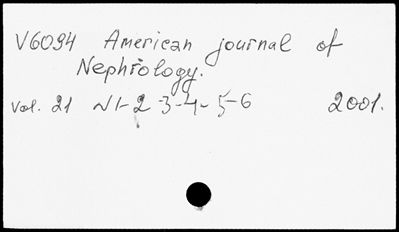 V6094 American journal of
Nephrology.
Vol. 21 N1-2-3-4-5-6 2001.